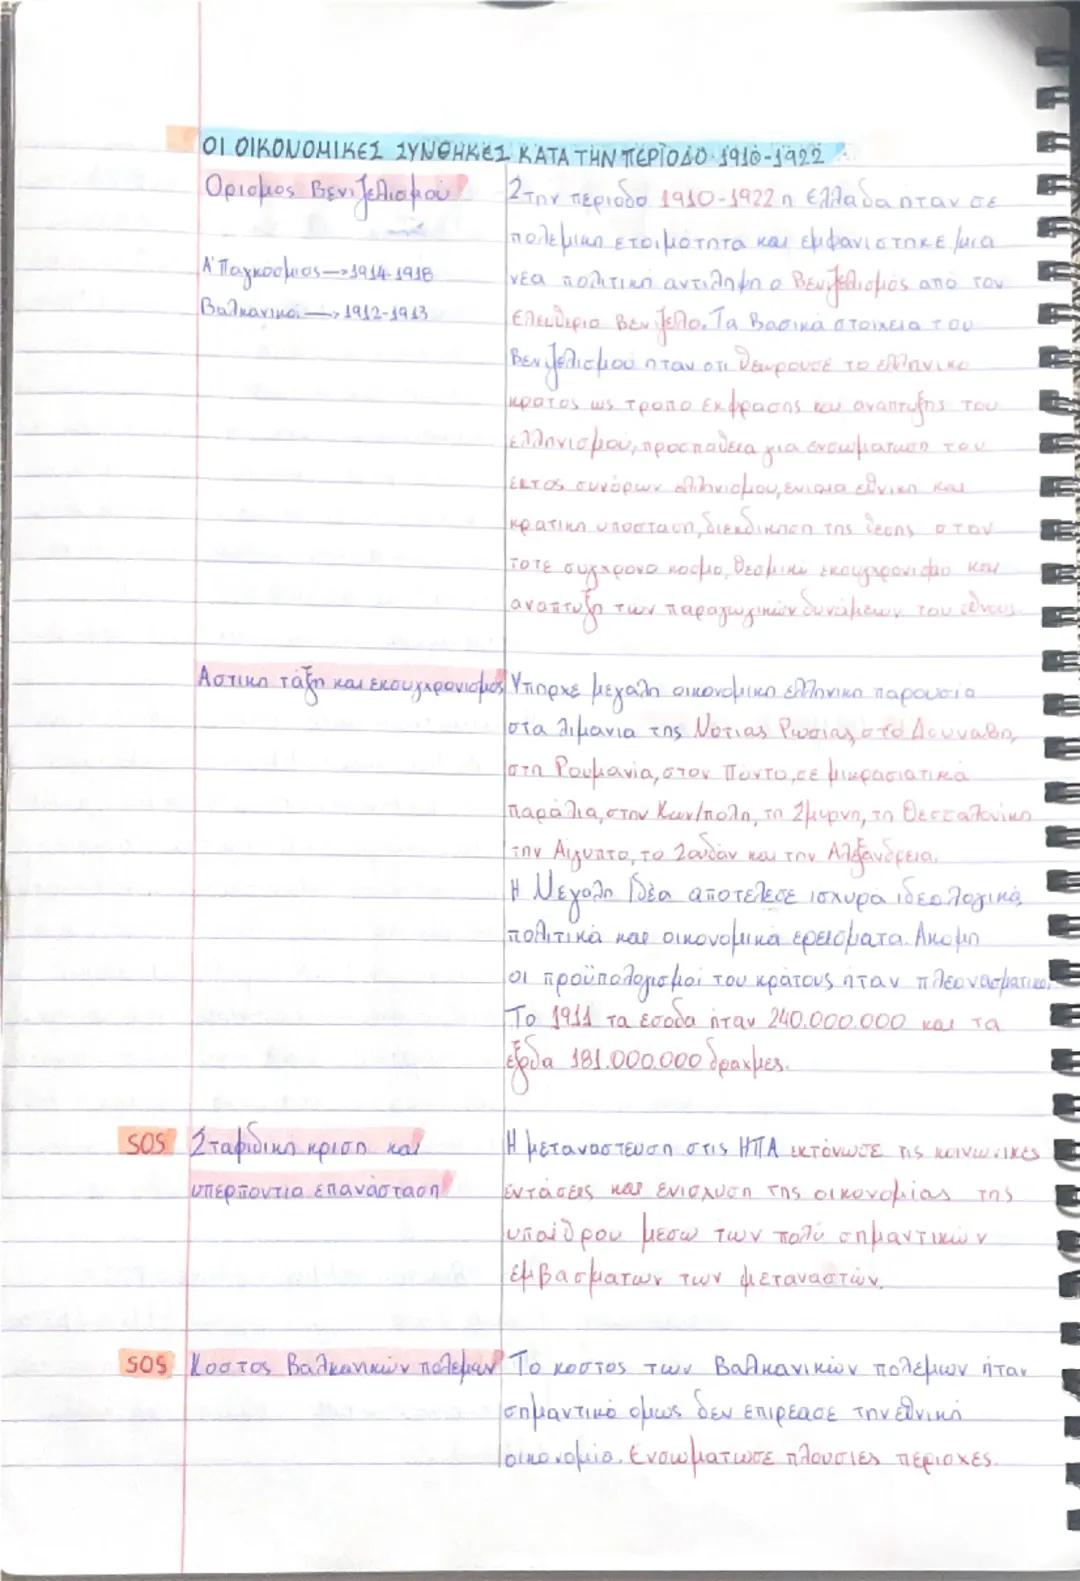 ΟΙ ΟΙΚΟΝΟΜΙΚΕΣ ΣΥΝΘΗΚΕΣ ΚΑΤΑ ΤΗΝ ΠΕΡΙΟΔΟ 1910-1922
Ορισμος Βενιζελισμου
Α' Παγκοσμιος → 1914-1918
Βαλκανικοι → 1912-1913
Στην περιοδο 1910-1922 η Ελλαδα ηταν σε
πολεμικη ετοιμοτητα και εμφανιστηκε μια
νεα πολιτικη αντιληψη ο Βενιζελισμος απο τον
Ελευθεριο Βενιζελο. Τα βασικα στοιχεια του
Βενιζελισμου ηταν οτι θεωρουσε το ελληνικο
κρατος ως τροπο εκφρασης και αναπτυξης του
ελληνισμου, προσπαθεια για ενσωματωση του
εκτος συνόρων ελληνισμου, ενιαια εθνικη και
κρατικη υποσταση, διεκδικηση της θεσης στον
τοτε συγχρονο κοσμο, θεσμικο εκσυγχρονισμο και
αναπτυξη των παραγωγικών δυνάμεων του εθνους.
Αστικη τάξη και εκσυγχρονισμος
Υπηρχε μεγαλη οικονομικη ελληνικη παρουσια
στα λιμανια της Νοτιας Ρωσιας, στο Δουναβη,
στη Ρουμανια, στον Ποντο, σε μικρασιατικα
παράλια, στην Κων/πολη, τη Σμυρνη, τη Θεσσαλονικη
την Αιγυπτο, το Σουδάν και την Αλεξάνδρεια.
Η Μεγαλη Ιδέα αποτέλεσε ισχυρα ιδεολογικά,
πολιτικά και οικονομικα ερεισματα. Ακομη
οι προϋπολογισμοί του κράτους ήταν πλεονασματικοι
Το 1911 τα εσοδα ήταν 240.000.000 και τα
εξοδα 181.000.000 δραχμες.
SOS Σταφιδικη κριση και
υπερποντια επανάσταση
Η μεταναστευση στις ΗΠΑ εκτόνωσε τις κοινωνικες
εντάσεις και ενισχυση της οικονομιας της
υπαίθρου μεσω των πολύ σημαντικών
εμβασματων των μεταναστών.
SOS Κοστος Βαλκανικών πολεμων
Το κοστος των Βαλκανικών πολεμων ήταν
σημαντικό ομως δεν επιρεασε την εθνική
οικονομια. Ενσωματωσε πλουσιες περιοχες.